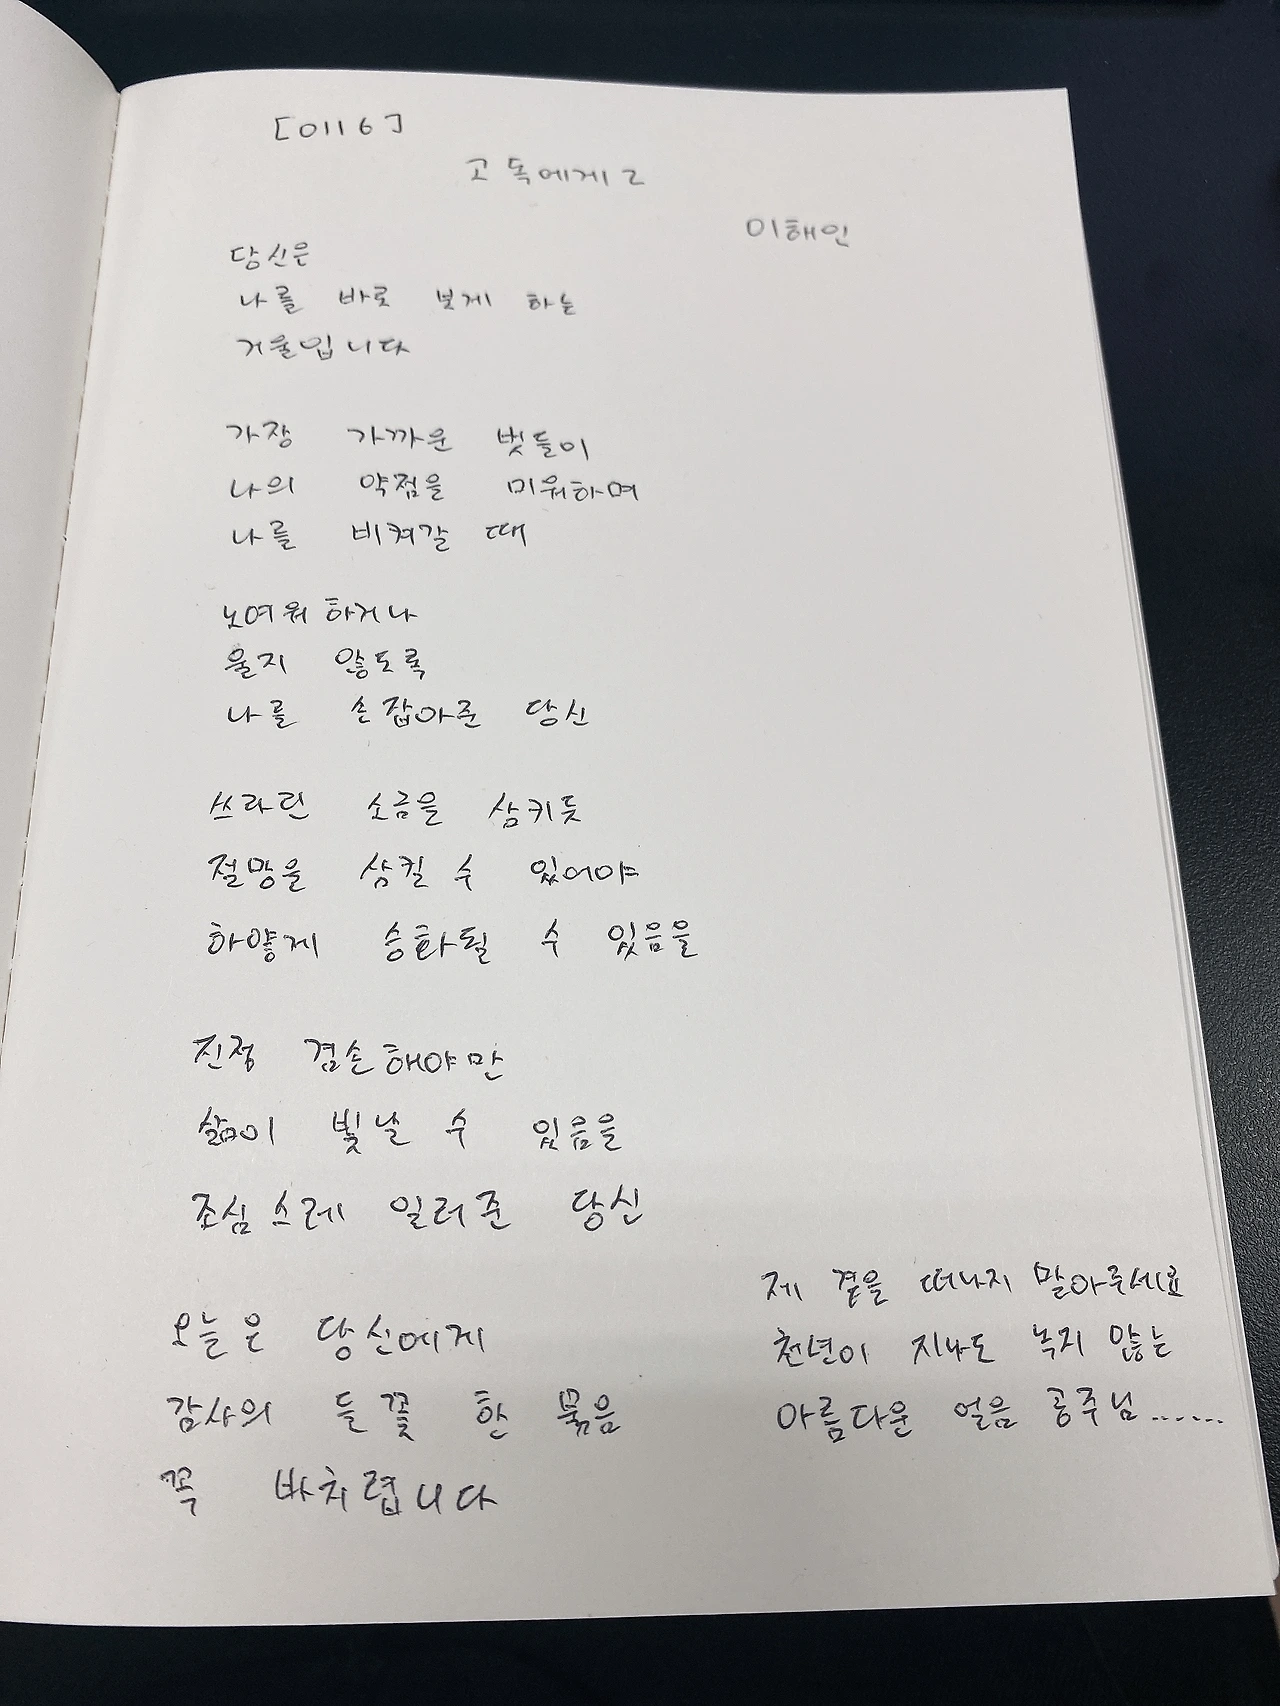 [0116]
고독에게 2
이해인
당신은
나를 바로 보게 하는
거울입니다
가장 가까운 벗들이
나의 약점을 미워하며
나를 비켜갈 때
노여워 하거나
울지 않도록
나를 손잡아준 당신
쓰라린 소금을 삼키듯
절망을 삼킬 수 있어야
하얗게 승화될 수 있음을
진정 겸손해야만
삶이 빛날 수 있음을
조심스레 일러준 당신
오늘은 당신에게
감사의 들꽃 한 묶음
꼭 바치렵니다
제 곁을 떠나지 말아주세요
천년이 지나도 녹지 않는
아름다운 얼음 공주님......